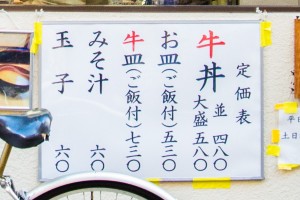 定価表
牛丼 並 四八〇
大盛 五八〇
お皿(ご飯付)五三〇
牛皿(ご飯付)七三〇
みそ汁 六〇
玉子 六〇
平日
土日